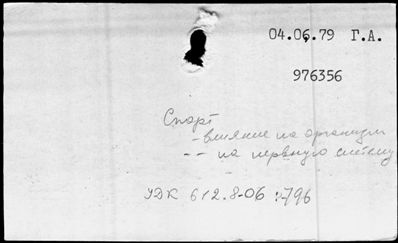 04.06.79 Г.А.
976356
Спорт
- влияние на организм
- - на нервную систему
УДК 612.8-06 : 796